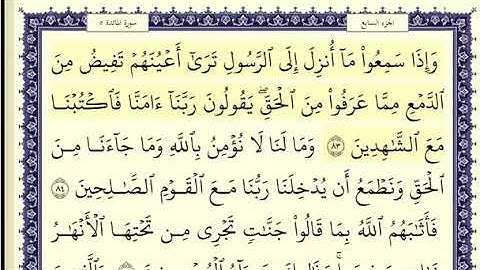 سورة المائدة ٥
الجزء السابع
وَإِذَا سَمِعُوا۟ مَآ أُنزِلَ إِلَى ٱلرَّسُولِ تَرَىٰٓ أَعْيُنَهُمْ تَفِيضُ مِنَ
ٱلدَّمْعِ مِمَّا عَرَفُوا۟ مِنَ ٱلْحَقِّ ۖ يَقُولُونَ رَبَّنَآ ءَامَنَّا فَٱكْتُبْنَا
مَعَ ٱلشَّـٰهِدِينَ ٨٣ وَمَا لَنَا لَا نُؤْمِنُ بِٱللَّهِ وَمَا جَآءَنَا مِنَ
ٱلْحَقِّ وَنَطْمَعُ أَن يُدْخِلَنَا رَبُّنَا مَعَ ٱلْقَوْمِ ٱلصَّـٰلِحِينَ ٨٤
فَأَثَـٰبَهُمُ ٱللَّهُ بِمَا قَالُوا۟ جَنَّـٰتٍ تَجْرِى مِن تَحْتِهَا ٱلْأَنْهَـٰرُ